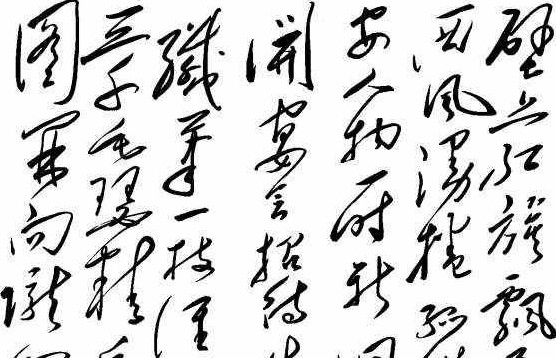 壁上红旗飘
西风漫捲孤
安人物一时新
開宴会招待
纖筆一枝谁
三千毛瑟精
圖開向隴